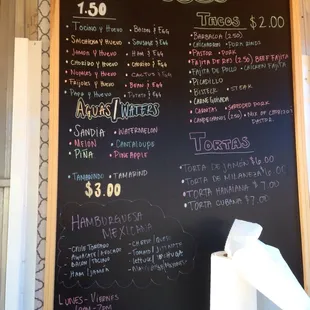 1.50
Tocino y Huevo • Bacon & Egg
Salchicha y Huevo • Sausage & Egg
Jamon y Huevo • Ham & Egg
Chorizo y Huevo • Chorizo & Egg
Nopales y Huevo • Cactus & Egg
Frijoles y Huevo • Bean & Egg
Papa y Huevo • Potato & Egg
Aguas/Waters
Sandia • Watermelon
• Melon Cantaloupe
Piña • Pineapple
Tamarindo • Tamarind
$3.00
Hamburguesa
Mexicana
Aguacate/Avocado
Bacon/Tocino
Ham/Jamon
Lettuce/
Lunes - Viernes
Tacos $2.00
• Barbacoa (2.50)
• Chicharron • Pork Rinds
• Pastor • Pork
• Fajita de Res (2.50) Beef Fajita
• Fajita de Pollo • Chicken Fajita
• Picadillo
• Bisteck • Steak
• Carne Guisada
• Carnitas • Shredded Pork
Pastor
Tortas
• Torta de Jamón $6.00
• Torta de Milanesa
• Torta Hawaiana $7.00
• Torta Cubana $7.00